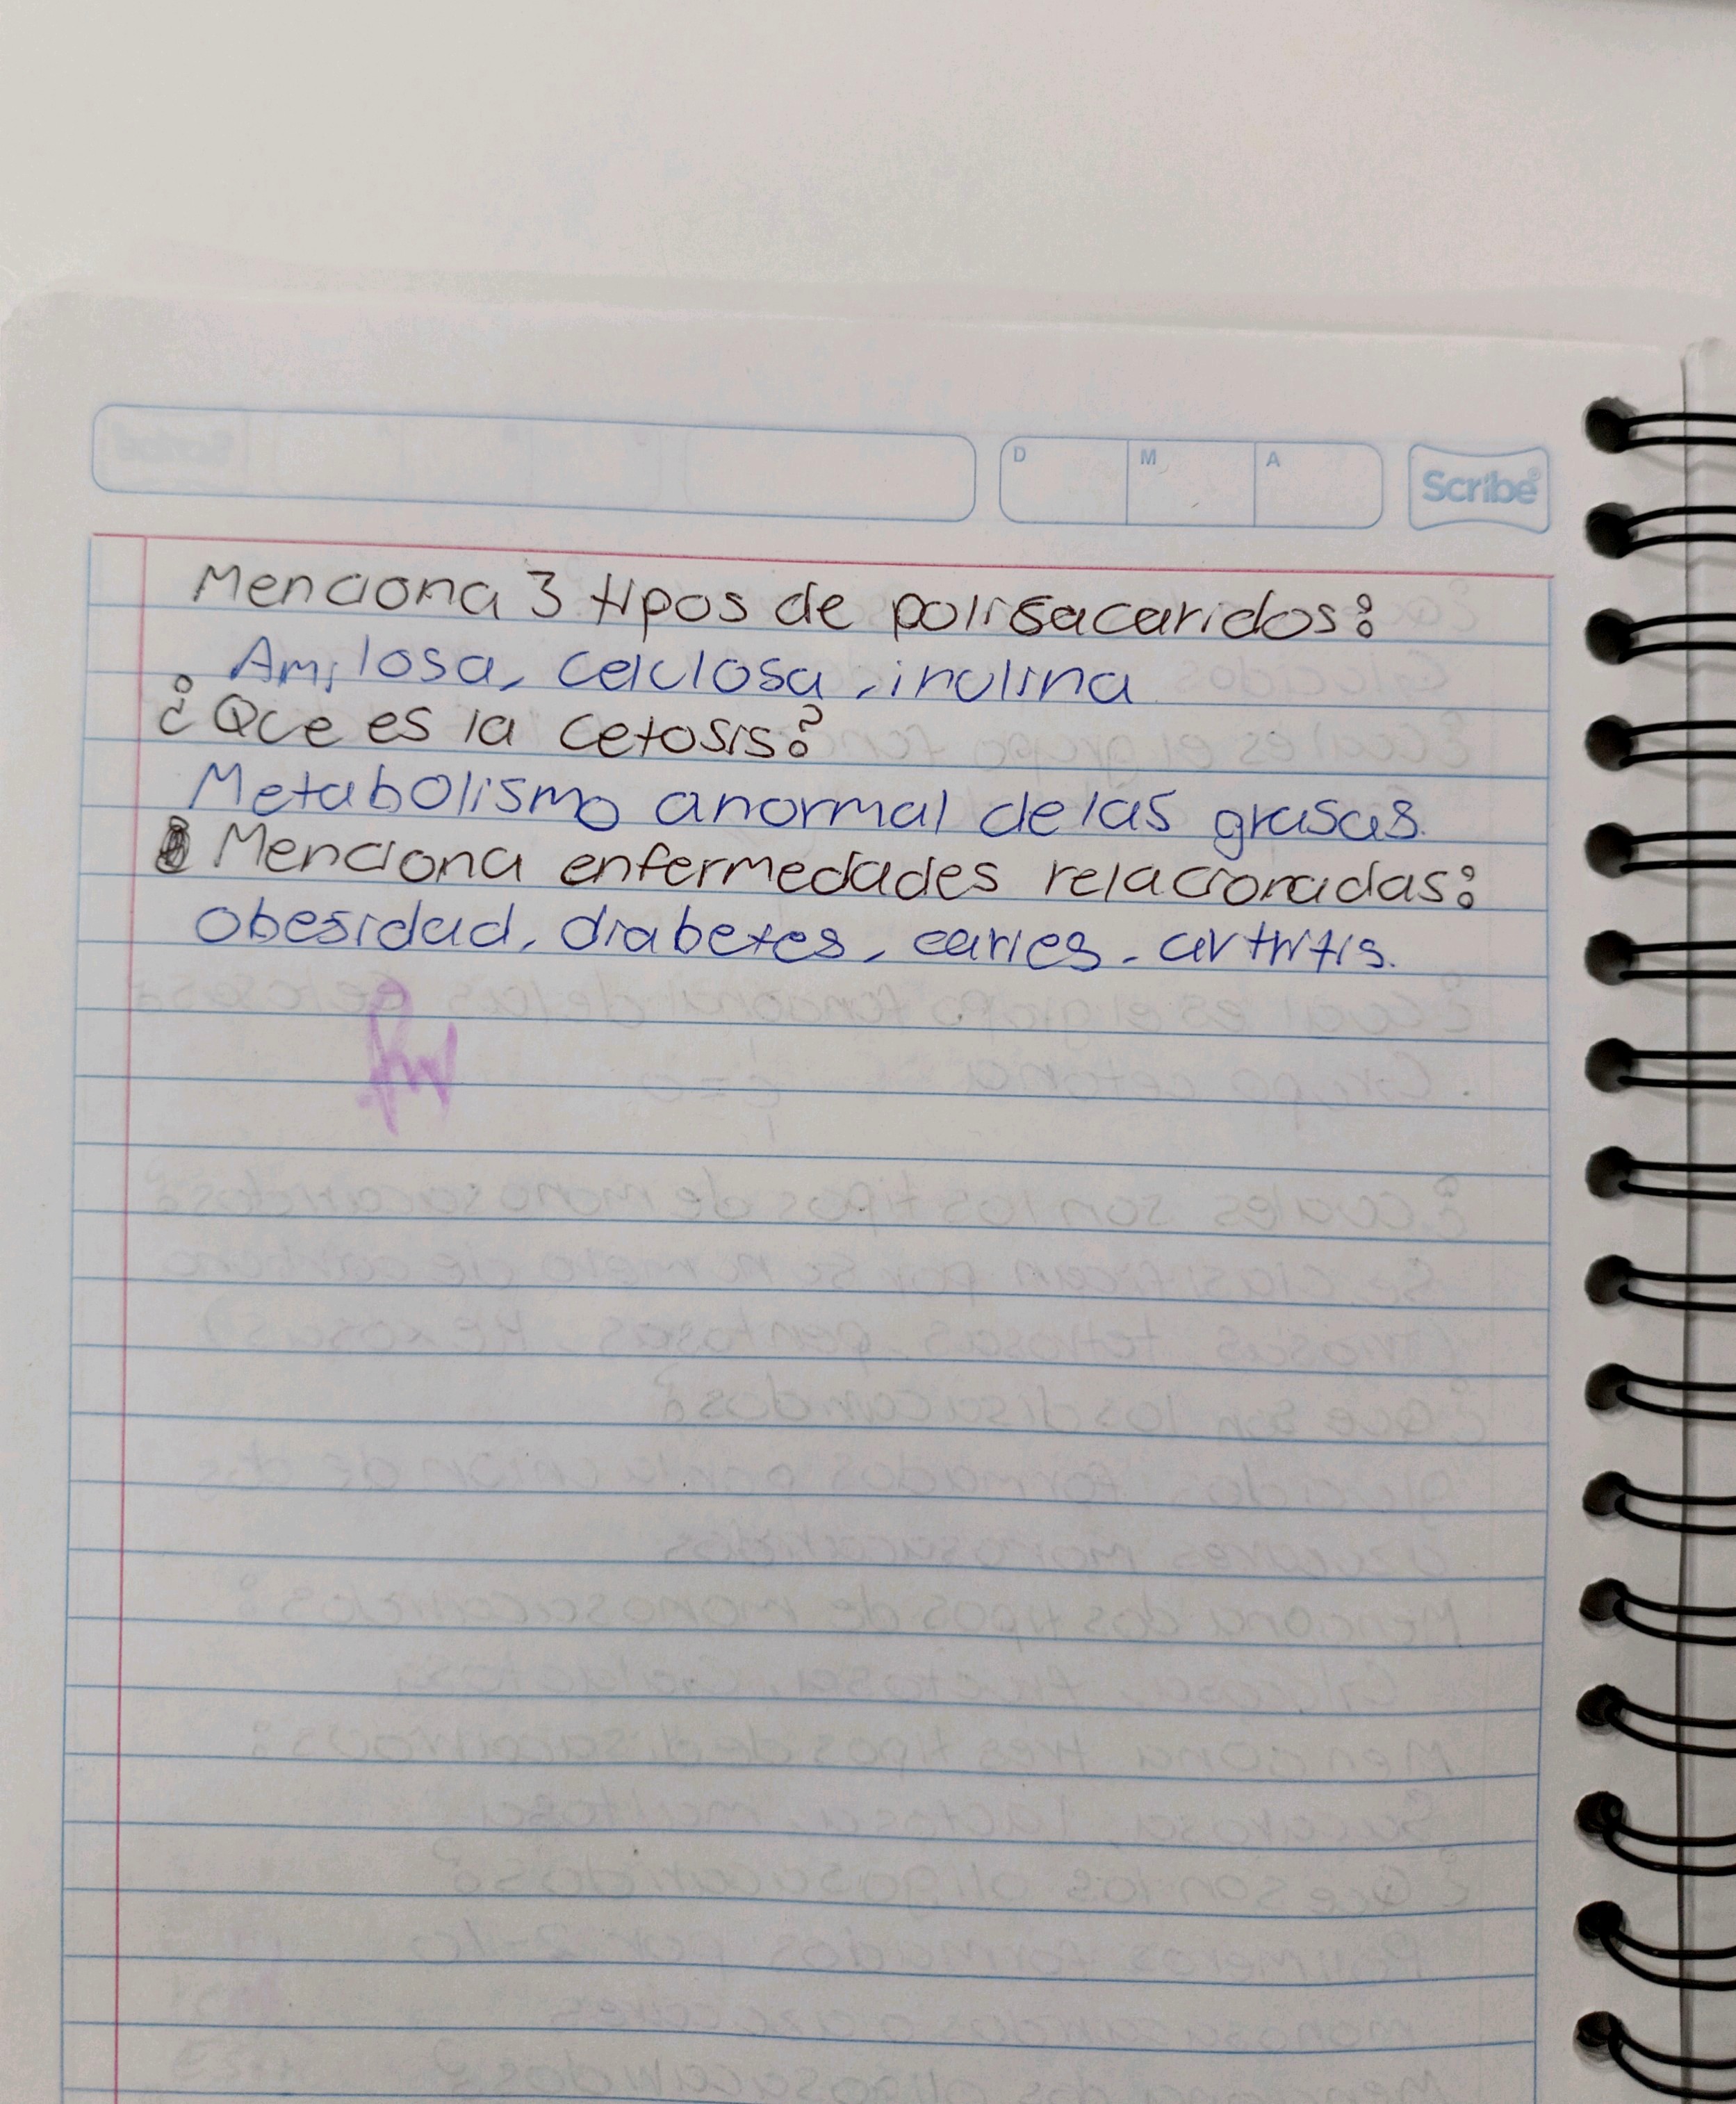 D M A Scribe
Menciona 3 tipos de polisacaridos:
Amilosa, celulosa, inulina
¿Que es la cetosis?
Metabolismo anormal de las grasas.
Menciona enfermedades relacionadas:
obesidad, diabetes, caries, artritis.